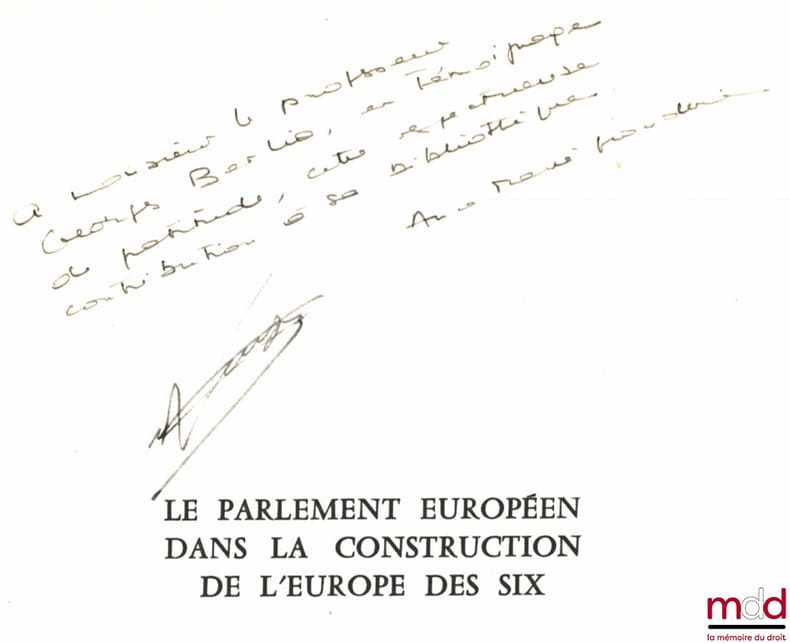 A Monsieur le professeur
Georges Berlia, en Témoignage
de gratitude, cette respectueuse
contribution à sa bibliothèque
Anne Marie
LE PARLEMENT EUROPÉEN
DANS LA CONSTRUCTION
DE L'EUROPE DES SIX
mdd
la mémoire du droit